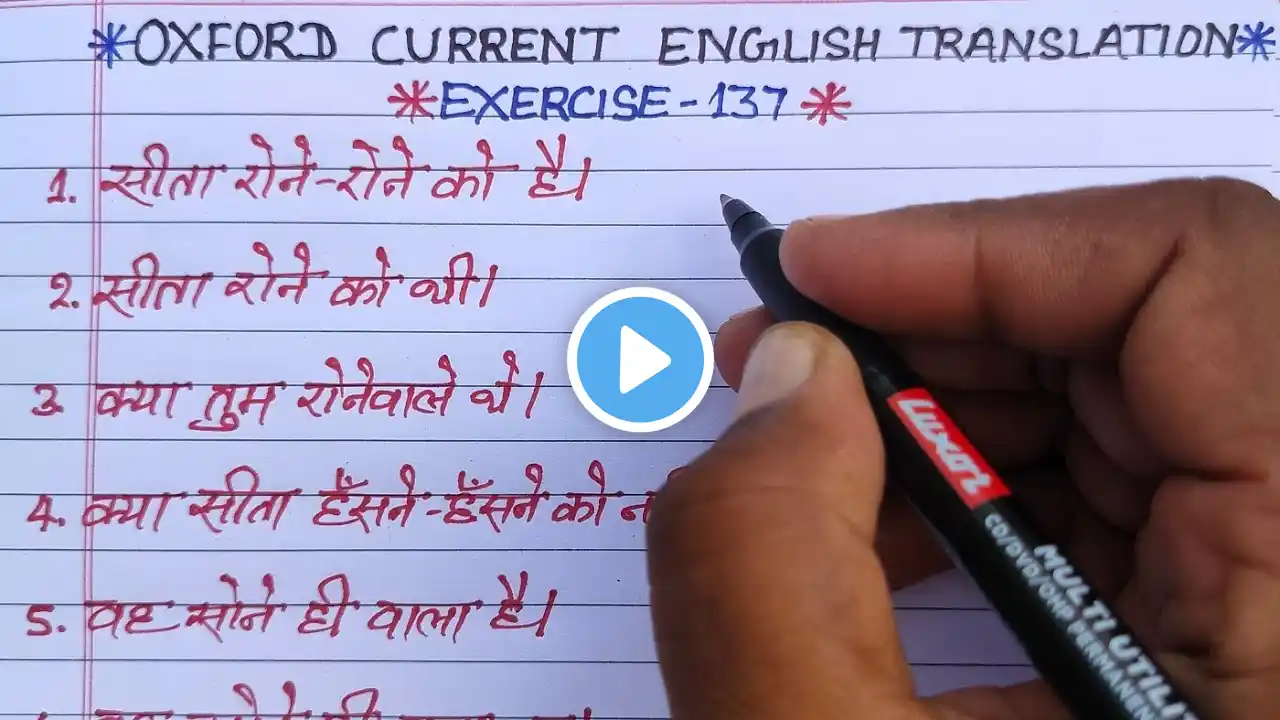 *OXFORD CURRENT ENGLISH TRANSLATION*
*EXERCISE-137*
1. सीता रोने-रोने को है।
2. सीता रोने को थी।
3. क्या तुम रोनेवाले थे।
4. क्या सीता हँसने-हँसने को
5. वह सोने ही वाला है।
Luxor
MULTI UTILI
CD/DVD/OHP PERMANEN